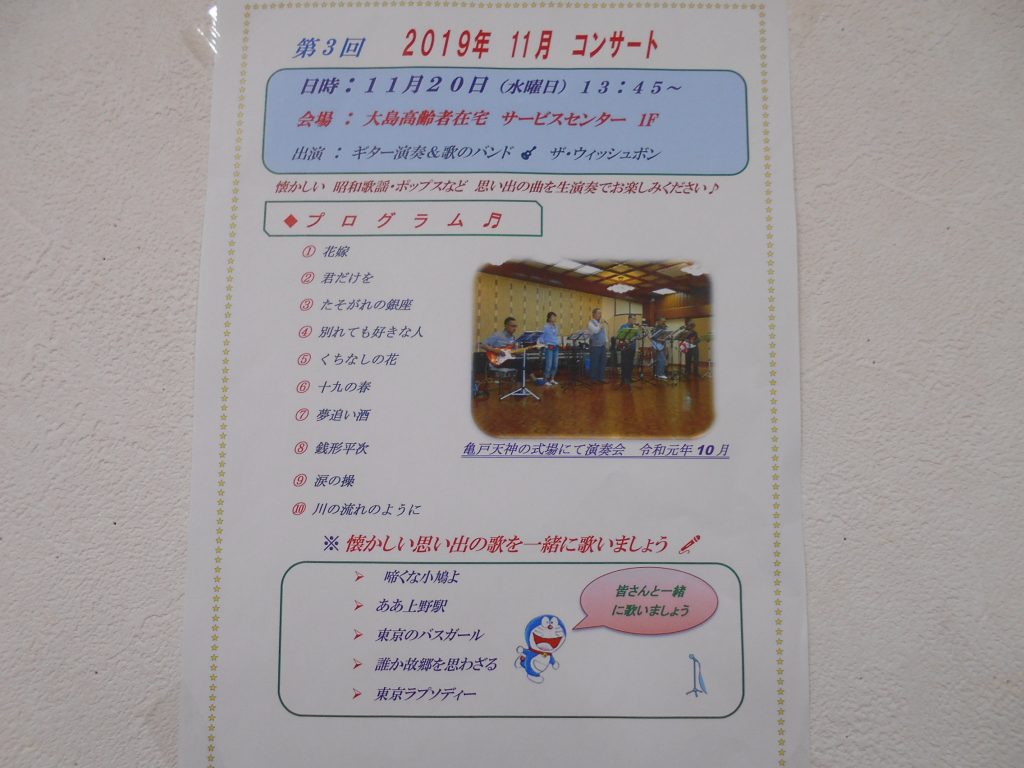 第3回 2019年 11月 コンサート
日時：11月20日（水曜日）13：45～
会場 ： 大島高齢者在宅 サービスセンター 1F
出演 ： ギター演奏＆歌のバンド ザ・ウィッシュボン
懐かしい 昭和歌謡・ポップスなど 思い出の曲を生演奏でお楽しみください♪
◆プログラム♬
① 花嫁
② 君だけを
③ たそがれの銀座
④ 別れても好きな人
⑤ くちなしの花
⑥ 十九の春
⑦ 夢追い酒
⑧ 銭形平次
⑨ 涙の操
⑩ 川の流れのように
亀戸天神の式場にて演奏会 令和元年10月
※ 懐かしい思い出の歌を一緒に歌いましょう
➢ 啼くな小鳩よ
➢ ああ上野駅
➢ 東京のバスガール
➢ 誰か故郷を思わざる
➢ 東京ラプソディー
皆さんと一緒
に歌いましょう